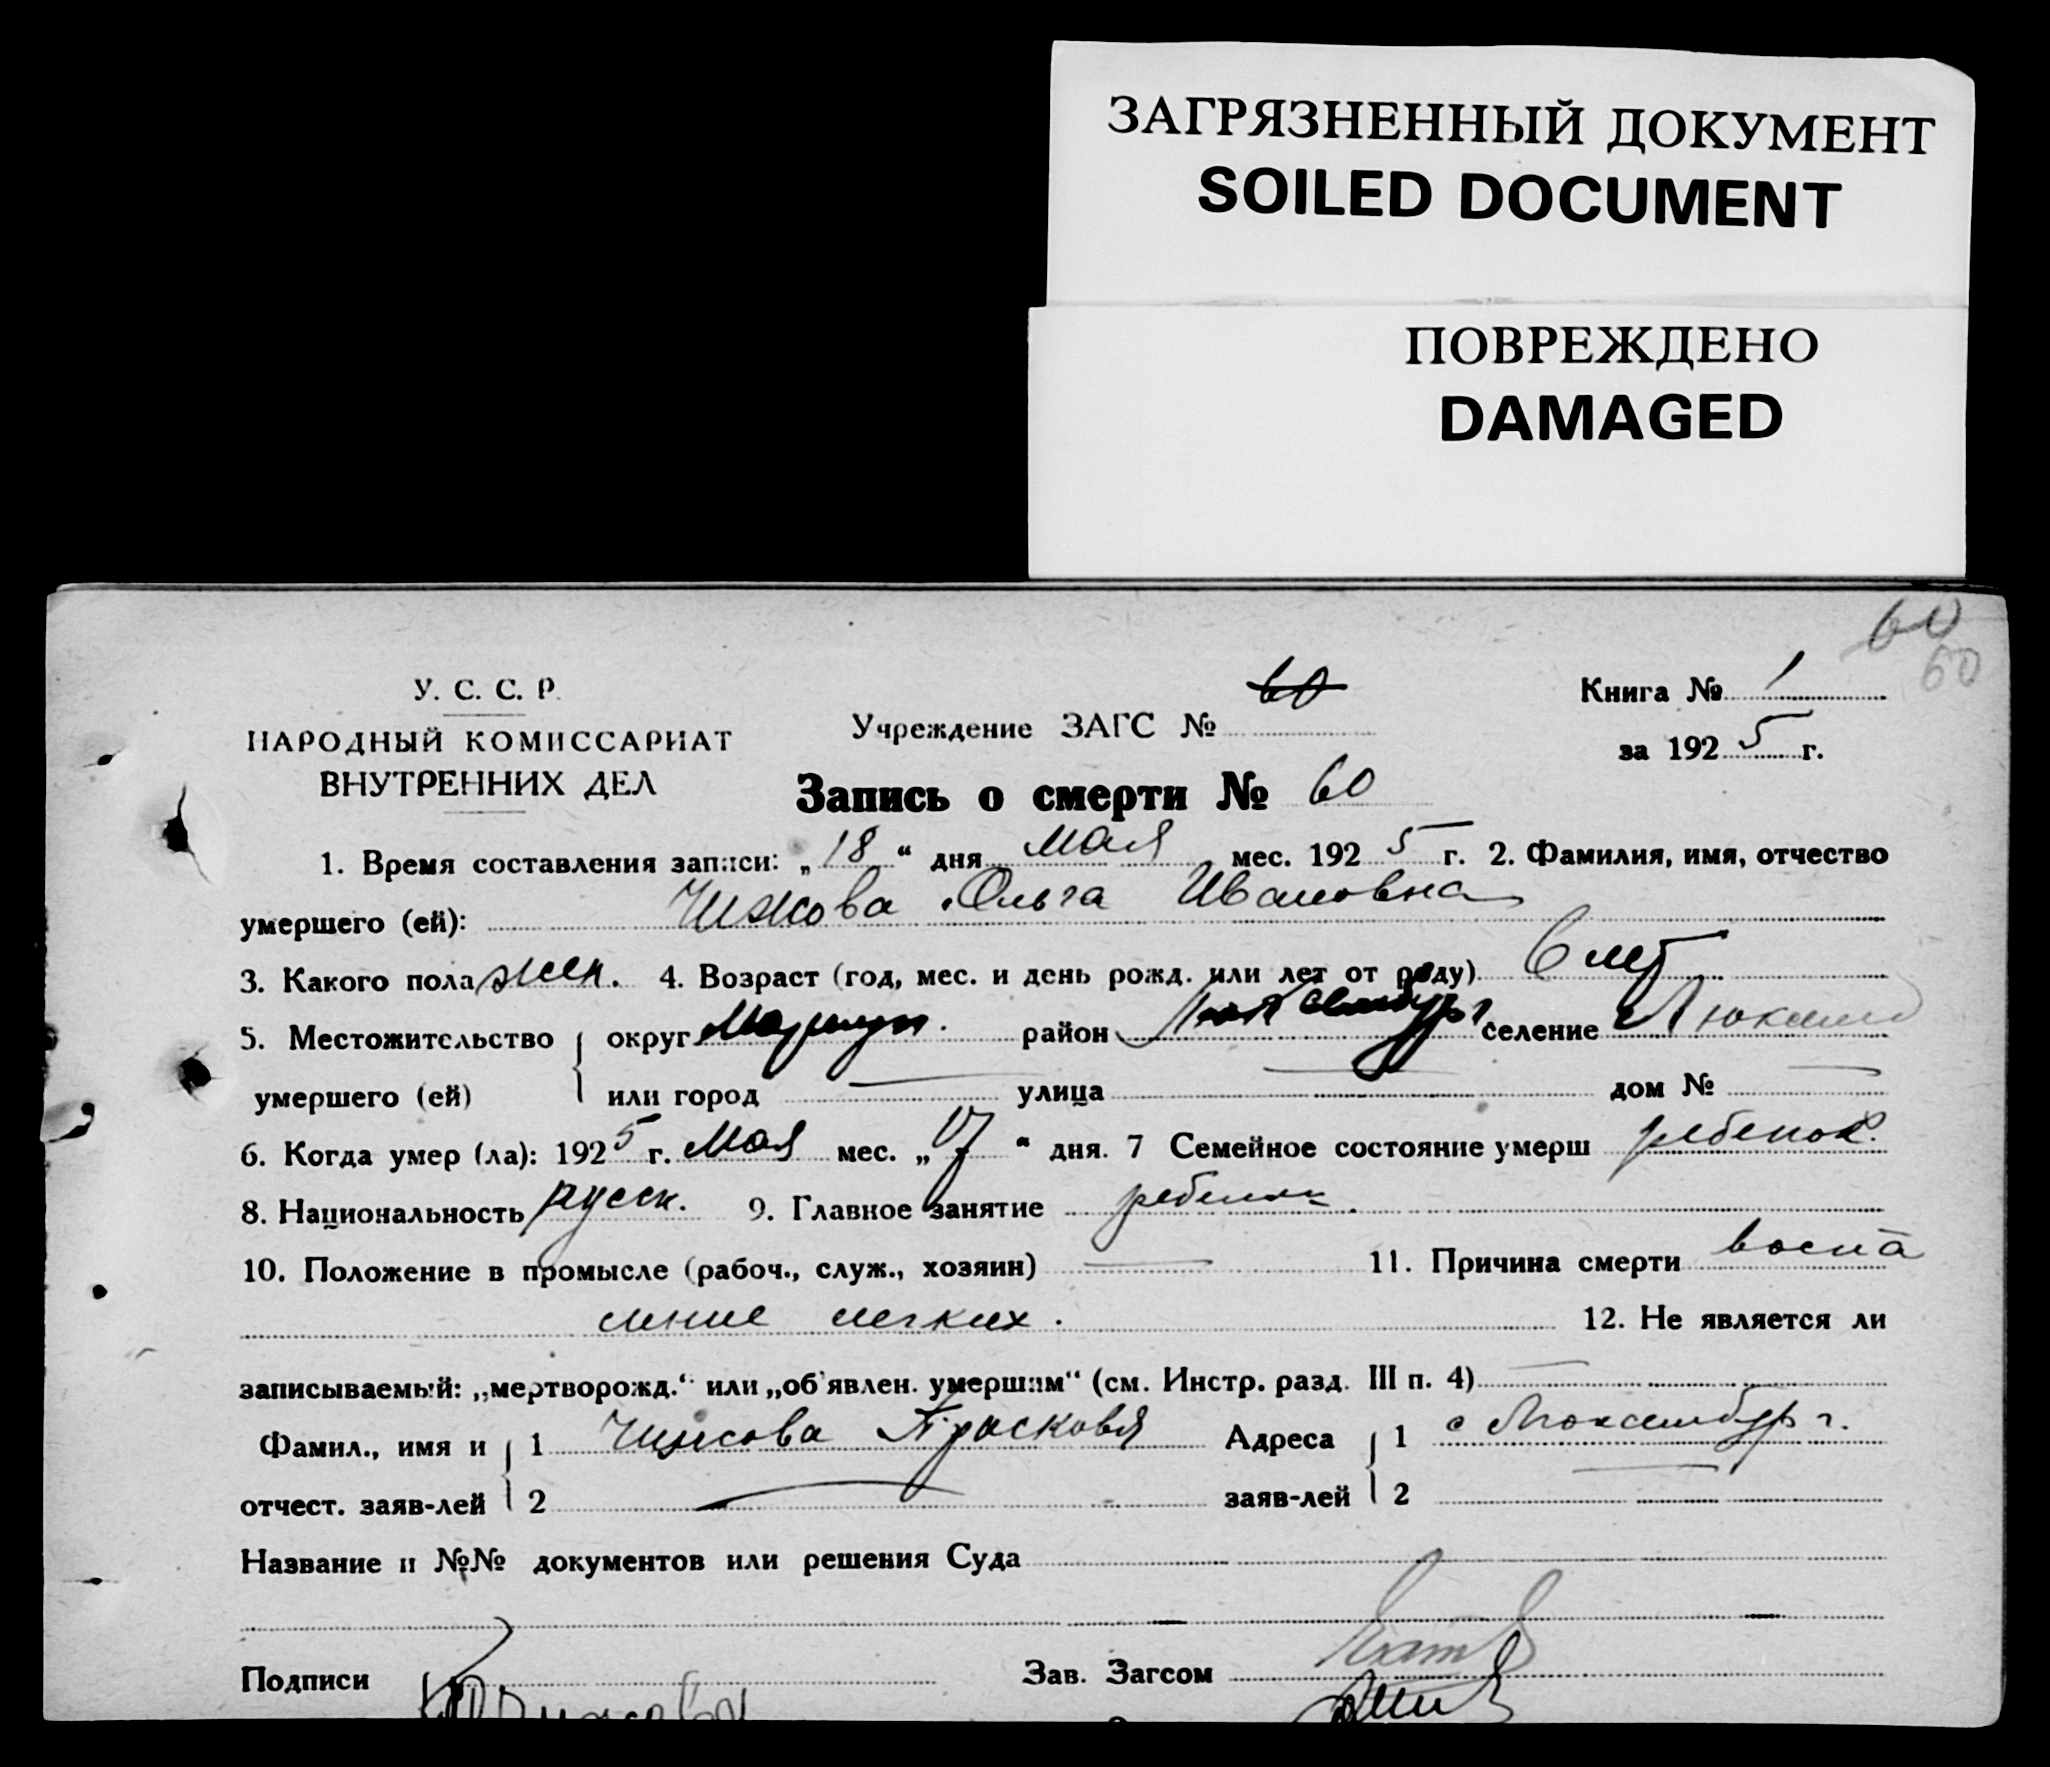 ЗАГРЯЗНЕННЫЙ ДОКУМЕНТ
SOILED DOCUMENT
ПОВРЕЖДЕНО
DAMAGED
60
60
У. С. С. Р.
НАРОДНЫЙ КОМИССАРИАТ
ВНУТРЕННИХ ДЕЛ
Учреждение ЗАГС № 60
Книга № 1
за 1925 г.
Запись о смерти № 60
1. Время составления записи: „18“ дня мая мес. 1925 г. 2. Фамилия, имя, отчество
умершего (ей): Чижова Ольга Ивановна
3. Какого пола жен. 4. Возраст (год, мес. и день рожд. или лет от роду) 6 лет
5. Местожительство округ Мариуп. район Люксембург селение Люксемб
умершего (ей) или город — улица — дом № —
6. Когда умер (ла): 1925 г. мая мес. „17“ дня. 7 Семейное состояние умерш ребенок.
8. Национальность русск. 9. Главное занятие ребенок.
10. Положение в промысле (рабоч., служ., хозяин) — 11. Причина смерти воспа
ление легких. 12. Не является ли
записываемый: „мертворожд.“ или „об'явлен. умершим“ (см. Инстр. разд. III п. 4) —
Фамил., имя и 1 Чижова Прасковья Адреса 1 с Люксембург.
отчест. заяв-лей 2 — заяв-лей 2 —
Название и №№ документов или решения Суда
Подписи Зав. Загсом